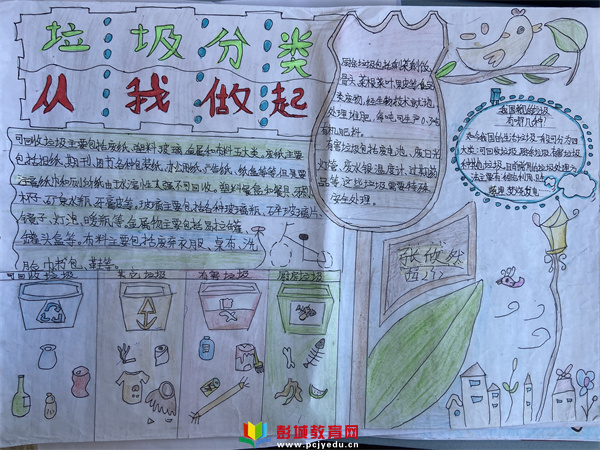 垃圾分类
从我做起
可回收垃圾主要包括废纸、塑料、玻璃、金属和布料五大类。废纸主要
包括旧纸、期刊、图书、各种包装纸、办公用纸、广告纸、纸盒等等,但是要
注意纸巾和厕所纸由于水溶性太强不可回收。塑料
杯子、矿泉水瓶、牙膏皮等。玻璃主要包括各种玻璃瓶、碎玻璃片、
镜子、灯泡、暖瓶等。金属物主要包括易拉罐、
罐头盒等。布料主要包括废弃衣服、桌布、洗
脸巾、书包、鞋等。
厨余垃圾包括剩菜剩饭、
骨头、菜根菜叶、果皮等食品
类废物,经生物技术就地
处理堆肥,每吨可生产0.3吨
有机肥料。
有害垃圾包括废电池、废日光
灯管、废水银温度计、过期药
品等,这些垃圾需要特殊
安全处理。
我国的垃圾
有哪几种?
如今我国的生活垃圾一般可分为四
大类:可回收垃圾、厨余垃圾、有害垃圾
和其他垃圾。目前常用的垃圾处理方
法主要有:综合利用、卫生
填埋、焚烧发电
可回收垃圾
其它垃圾
有害垃圾
厨房垃圾
彭城教育网
www.pcjyedu.cn